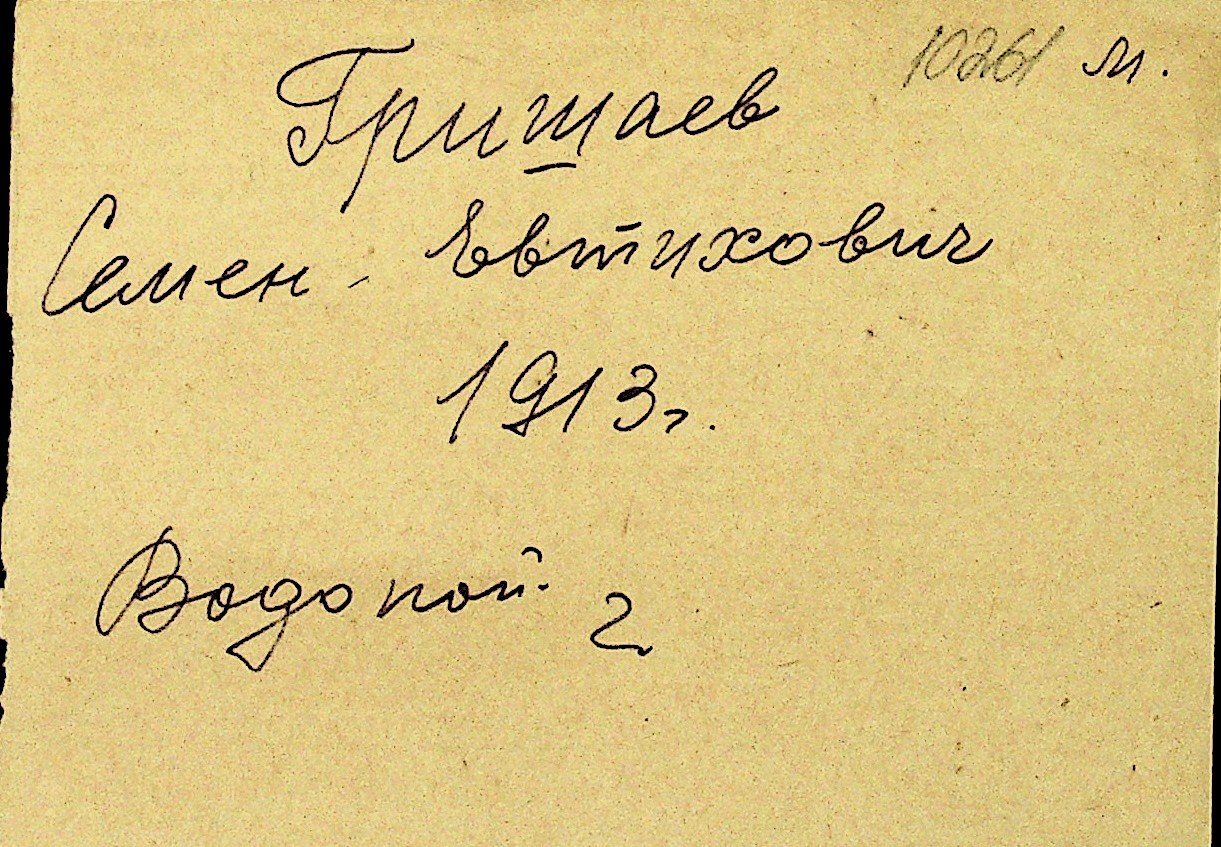 10261 м.
Гришаев
Семен Евтихович
1913г.
Водопой. 2